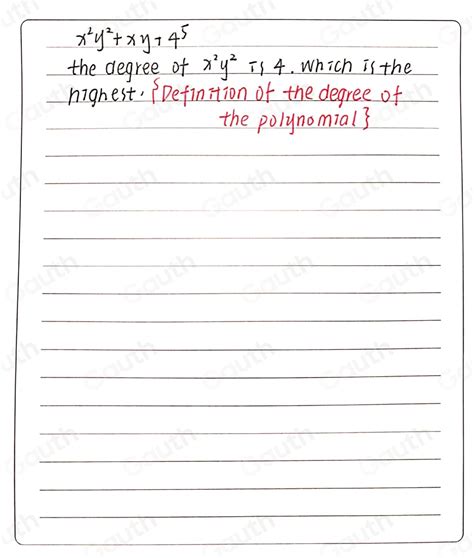 x²y²+xy+4⁵
the degree of x²y² is 4. which is the
highest. {Definition of the degree of
the polynomial}